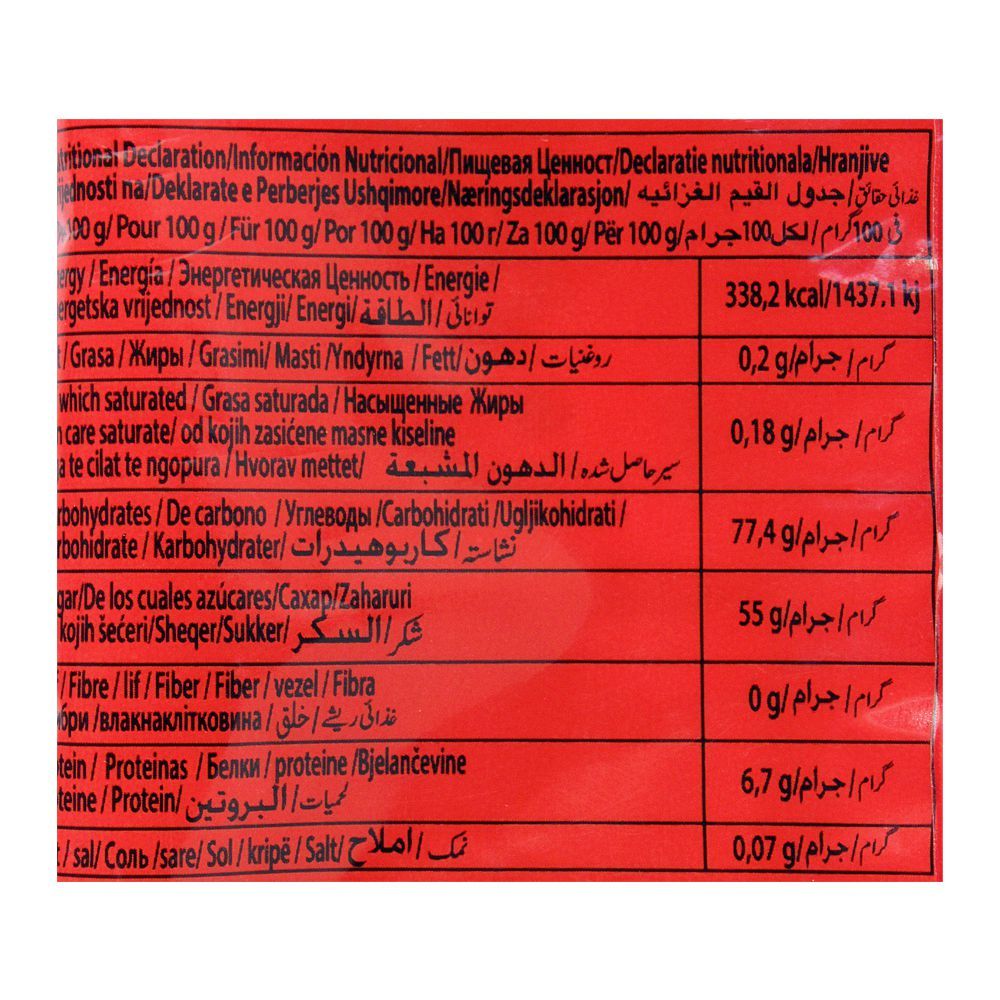 Declaration/Información Nutricional/Пищевая Ценност/Declaratie nutritionala/Hranjive
na/Deklarate e Perberjes Ushqimore/Næringsdeklarasjon/ جدول القيم الغزائيه / غذائی حقائق
100 g/ Pour 100 g / Für 100 g/ Por 100 g/ Ha 100 г/ Za 100 g/ Për 100 g/لكل100جرام/فی 100گرام
/ Energía / Энергетическая Ценность / Energie /
338,2 kcal/1437.1 kj
vrijednost / Energji/ Energi/الطاقة / توانائی
/ Grasa / Жиры / Grasimi/ Masti /Yndyrna / Fett/دهون / روغنیات
0,2 g/جرام/گرام
which saturated / Grasa saturada / Насыщенные Жиры
care saturate/ od kojih zasićene masne kiseline
0,18 g/جرام/گرام
a te cilat te ngopura / Hvorav mettet/ الدهون المشبعة / سیر حاصل شده
/ De carbono / Углеводы /Carbohidrati /Ugljikohidrati /
77,4 g/جرام/گرام
/ Karbohydrater/كاربوهيدرات / نشاستہ
/De los cuales azúcares/Сахар/Zaharuri
55 g/جرام/گرام
kojih šećeri/Sheqer/Sukker/السكر/شکر
/ Fibre / lif / Fiber / Fiber / vezel / Fibra
0 g/جرام/گرام
/влакнаклітковина / خلق / غذائی ریشے
/ Proteinas / Белки / proteine /Bjelančevine
6,7 g/جرام/گرام
/ Protein/البروتين/لحمیات
/ sal/ Соль /sare/ Sol / kripë / Salt/املاح / نمک
0,07 g/جرام/گرام